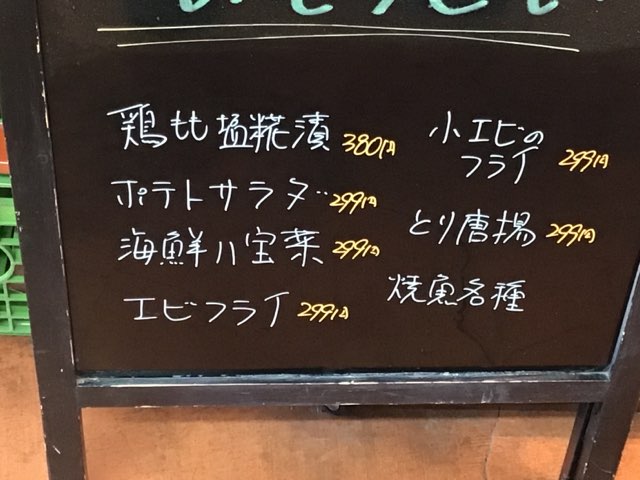 鶏もも塩糀漬 380円
ポテトサラダ 299円
海鮮八宝菜 299円
エビフライ 299円
小エビの
フライ 299円
とり唐揚 299円
焼魚各種